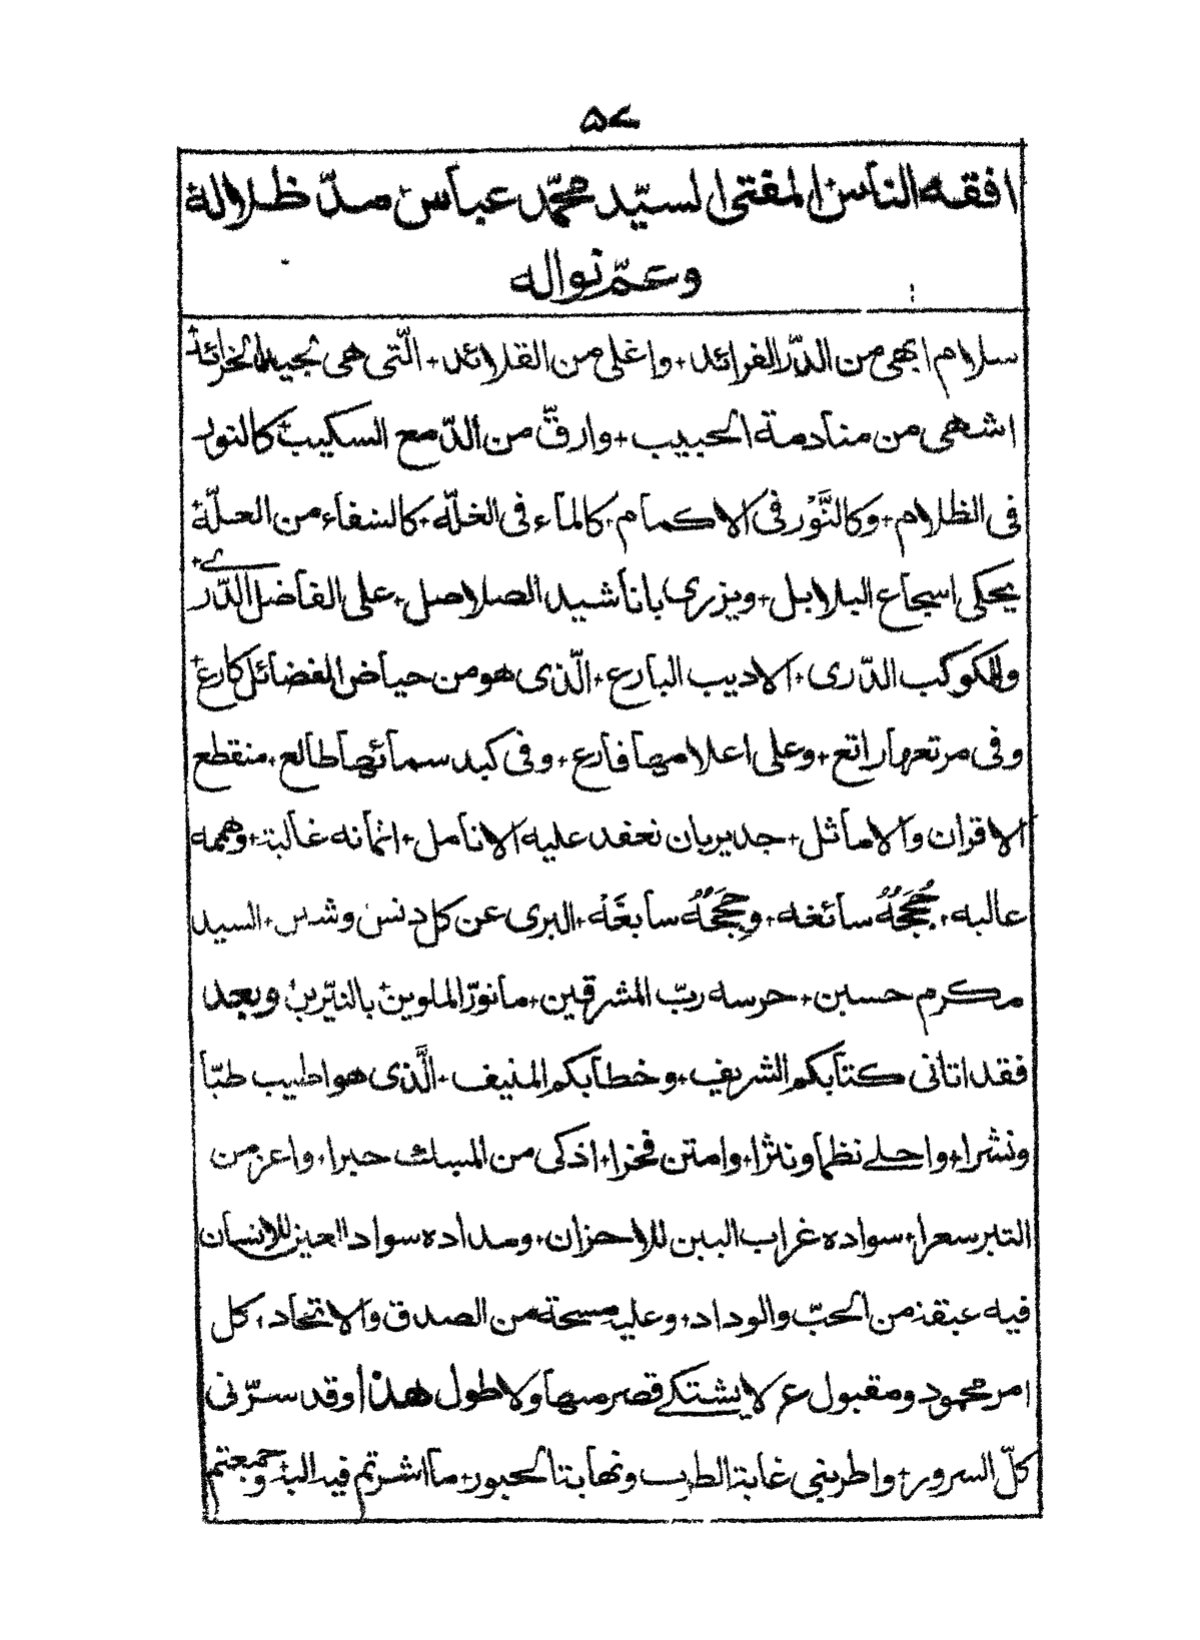 ۵۷
افقه الناس المفتی السیّد محمّد عباس مدّ ظلاله
وعمّ نواله
سلام ابهی من الدّر الفرائد+ واغلی من القلائد+ الّتی هی لجید الخرائد+
اشهی من منادمة الحبیب+ وارقّ من الدّمع السکیب+ کالنور
فی الظلام+ وکالنَّوْر فی الاکمام+ کالماء فی الغلّه+ کالشفاء من العلّة+
یحکی اسجاع البلابل+ ویزری باناشید الصلاصل+ علی الفاضل الدّرّی+
والکوکب الدّری+ الادیب البارع+ الّذی هو من حیاض الفضائل کارع+
وفی مرتعها راتع+ وعلی اعلامها فارع+ وفی کبد سمائها طالع+ منقطع
الاقران والاماثل+ جدیر بان تعقد علیه الانامل+ اثمانه غالیة+ وهممه
عالیه+ حُجَجُهُ سائغه+ وحِجَجُهُ سابغَه+ البری عن کل دنس وشس+ السید
مکرم حسین+ حرسه ربّ المشرقین+ ما نوّر الملوین بالنیّرین+ وبعد
فقد اتانی کتابکم الشریف+ وخطابکم المنیف+ الَّذی هو اطیب طبّا
ونشرا+ واحلی نظما ونثرا+ وامتن فخرا+ اذکی من المسک حبرا+ واعز من
التبر سعرا+ سواده غراب البین للاحزان+ ومداده سواد العین للانسان
فیه عبقة من الحبّ والوداد+ وعلیه مسحة من الصدق والاتحاد+ کل
امر محمود ومقبول ع لا یشتکی قصر منها ولا طول هذا وقد سرّنی
کلّ السرور+ واطربنی غایة الطرب ونهایة الحبور+ ما اشرتم فیه الیه وجمیعتم